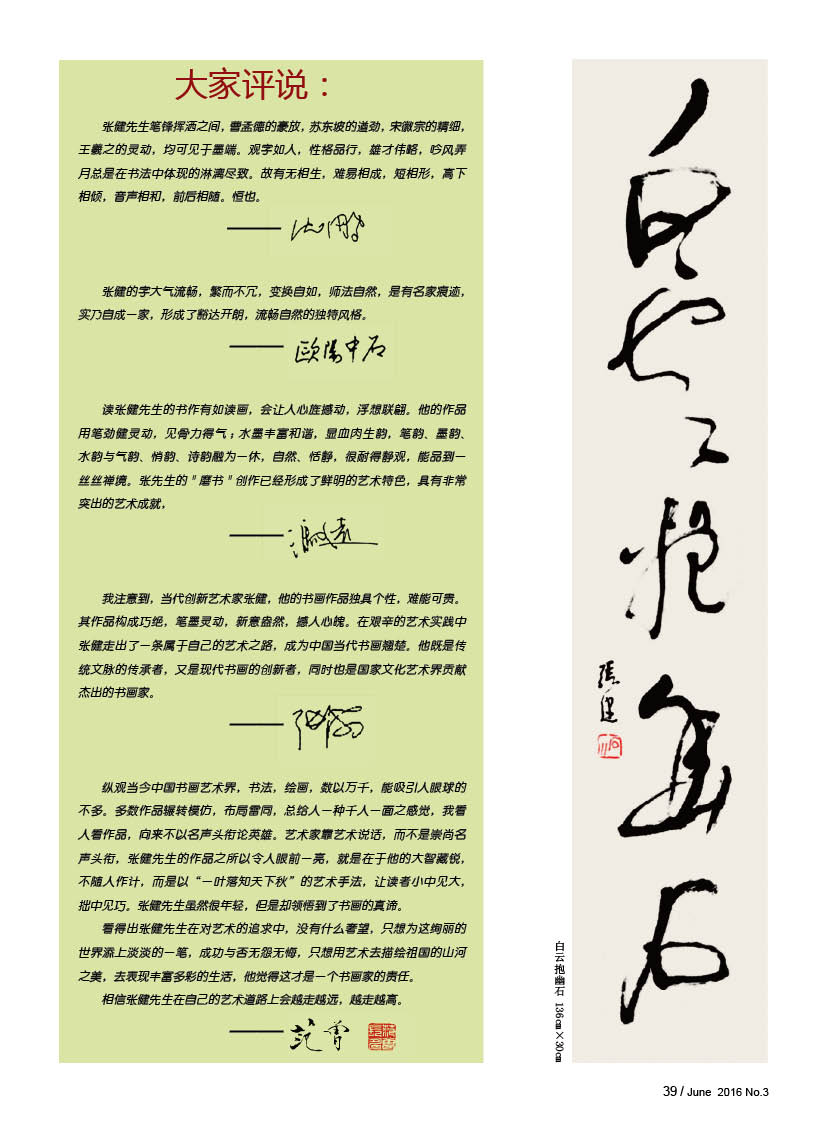 大家评说：
张健先生笔锋挥洒之间，曹孟德的豪放，苏东坡的遒劲，宋徽宗的精细，
王羲之的灵动，均可见于墨端。观字如人，性格品行，雄才伟略，吟风弄
月总是在书法中体现的淋漓尽致。故有无相生，难易相成，短相形，高下
相倾，音声相和，前后相随。恒也。
——沈鹏
张健的字大气流畅，繁而不冗，变换自如，师法自然，是有名家痕迹，
实乃自成一家，形成了豁达开朗，流畅自然的独特风格。
——欧阳中石
读张健先生的书作有如读画，会让人心旌撼动，浮想联翩。他的作品
用笔劲健灵动，见骨力得气；水墨丰富和谐，显血肉生韵，笔韵、墨韵、
水韵与气韵、情韵、诗韵融为一休，自然、恬静，很耐得静观，能品到一
丝丝禅境。张先生的"磨书"创作已经形成了鲜明的艺术特色，具有非常
突出的艺术成就，
——冯远
我注意到，当代创新艺术家张健，他的书画作品独具个性，难能可贵。
其作品构成巧绝，笔墨灵动，新意盎然，撼人心魄。在艰辛的艺术实践中
张健走出了一条属于自己的艺术之路，成为中国当代书画翘楚。他既是传
统文脉的传承者，又是现代书画的创新者，同时也是国家文化艺术界贡献
杰出的书画家。
——
纵观当今中国书画艺术界，书法，绘画，数以万千，能吸引人眼球的
不多。多数作品辗转模仿，布局雷同，总给人一种千人一面之感觉，我看
人看作品，向来不以名声头衔论英雄。艺术家靠艺术说话，而不是崇尚名
声头衔，张健先生的作品之所以令人眼前一亮，就是在于他的大智藏锐，
不随人作计，而是以“一叶落知天下秋”的艺术手法，让读者小中见大，
拙中见巧。张健先生虽然很年轻，但是却领悟到了书画的真谛。
看得出张健先生在对艺术的追求中，没有什么奢望，只想为这绚丽的
世界添上淡淡的一笔，成功与否无怨无悔，只想用艺术去描绘祖国的山河
之美，去表现丰富多彩的生活，他觉得这才是一个书画家的责任。
相信张健先生在自己的艺术道路上会越走越远，越走越高。
——范曾
白云抱幽石
張健
白云抱幽石 136cm×30cm
39 / June 2016 No.3